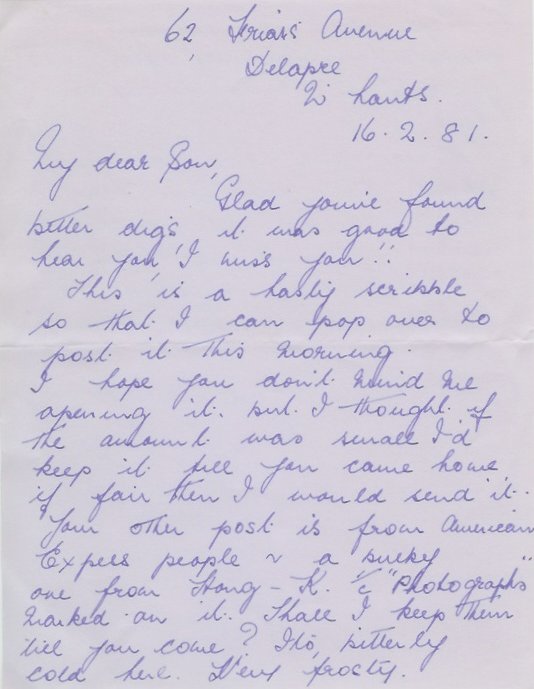 62, Friars Avenue
Delapre
N'hants.
16.2.81.
My dear Son,
Glad you've found
better digs, it was good to
hear you, I miss you!!
This is a hasty scribble
so that I can pop over to
post it this morning.
I hope you don't mind me
opening it, but I thought if
the amount was small I'd
keep it till you came home
if fair then I would send it.
Your other post is from American
Expess people & a bulky
one from Hong-K. "Photographs"
marked on it. Shall I keep them
till you come? Its, bitterly
cold here. Very frosty.